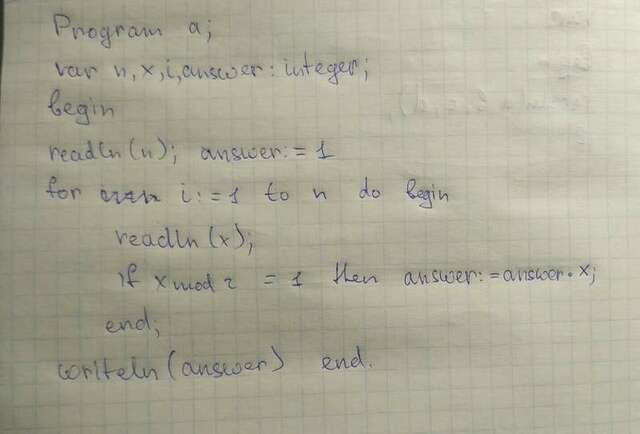 Program a;
var n, x, i, answer : integer;
begin
readln(n); answer:= 1
for i:=1 to n do begin
readln(x);
if x mod 2 = 1 then answer:=answer*x;
end;
writeln(answer) end.